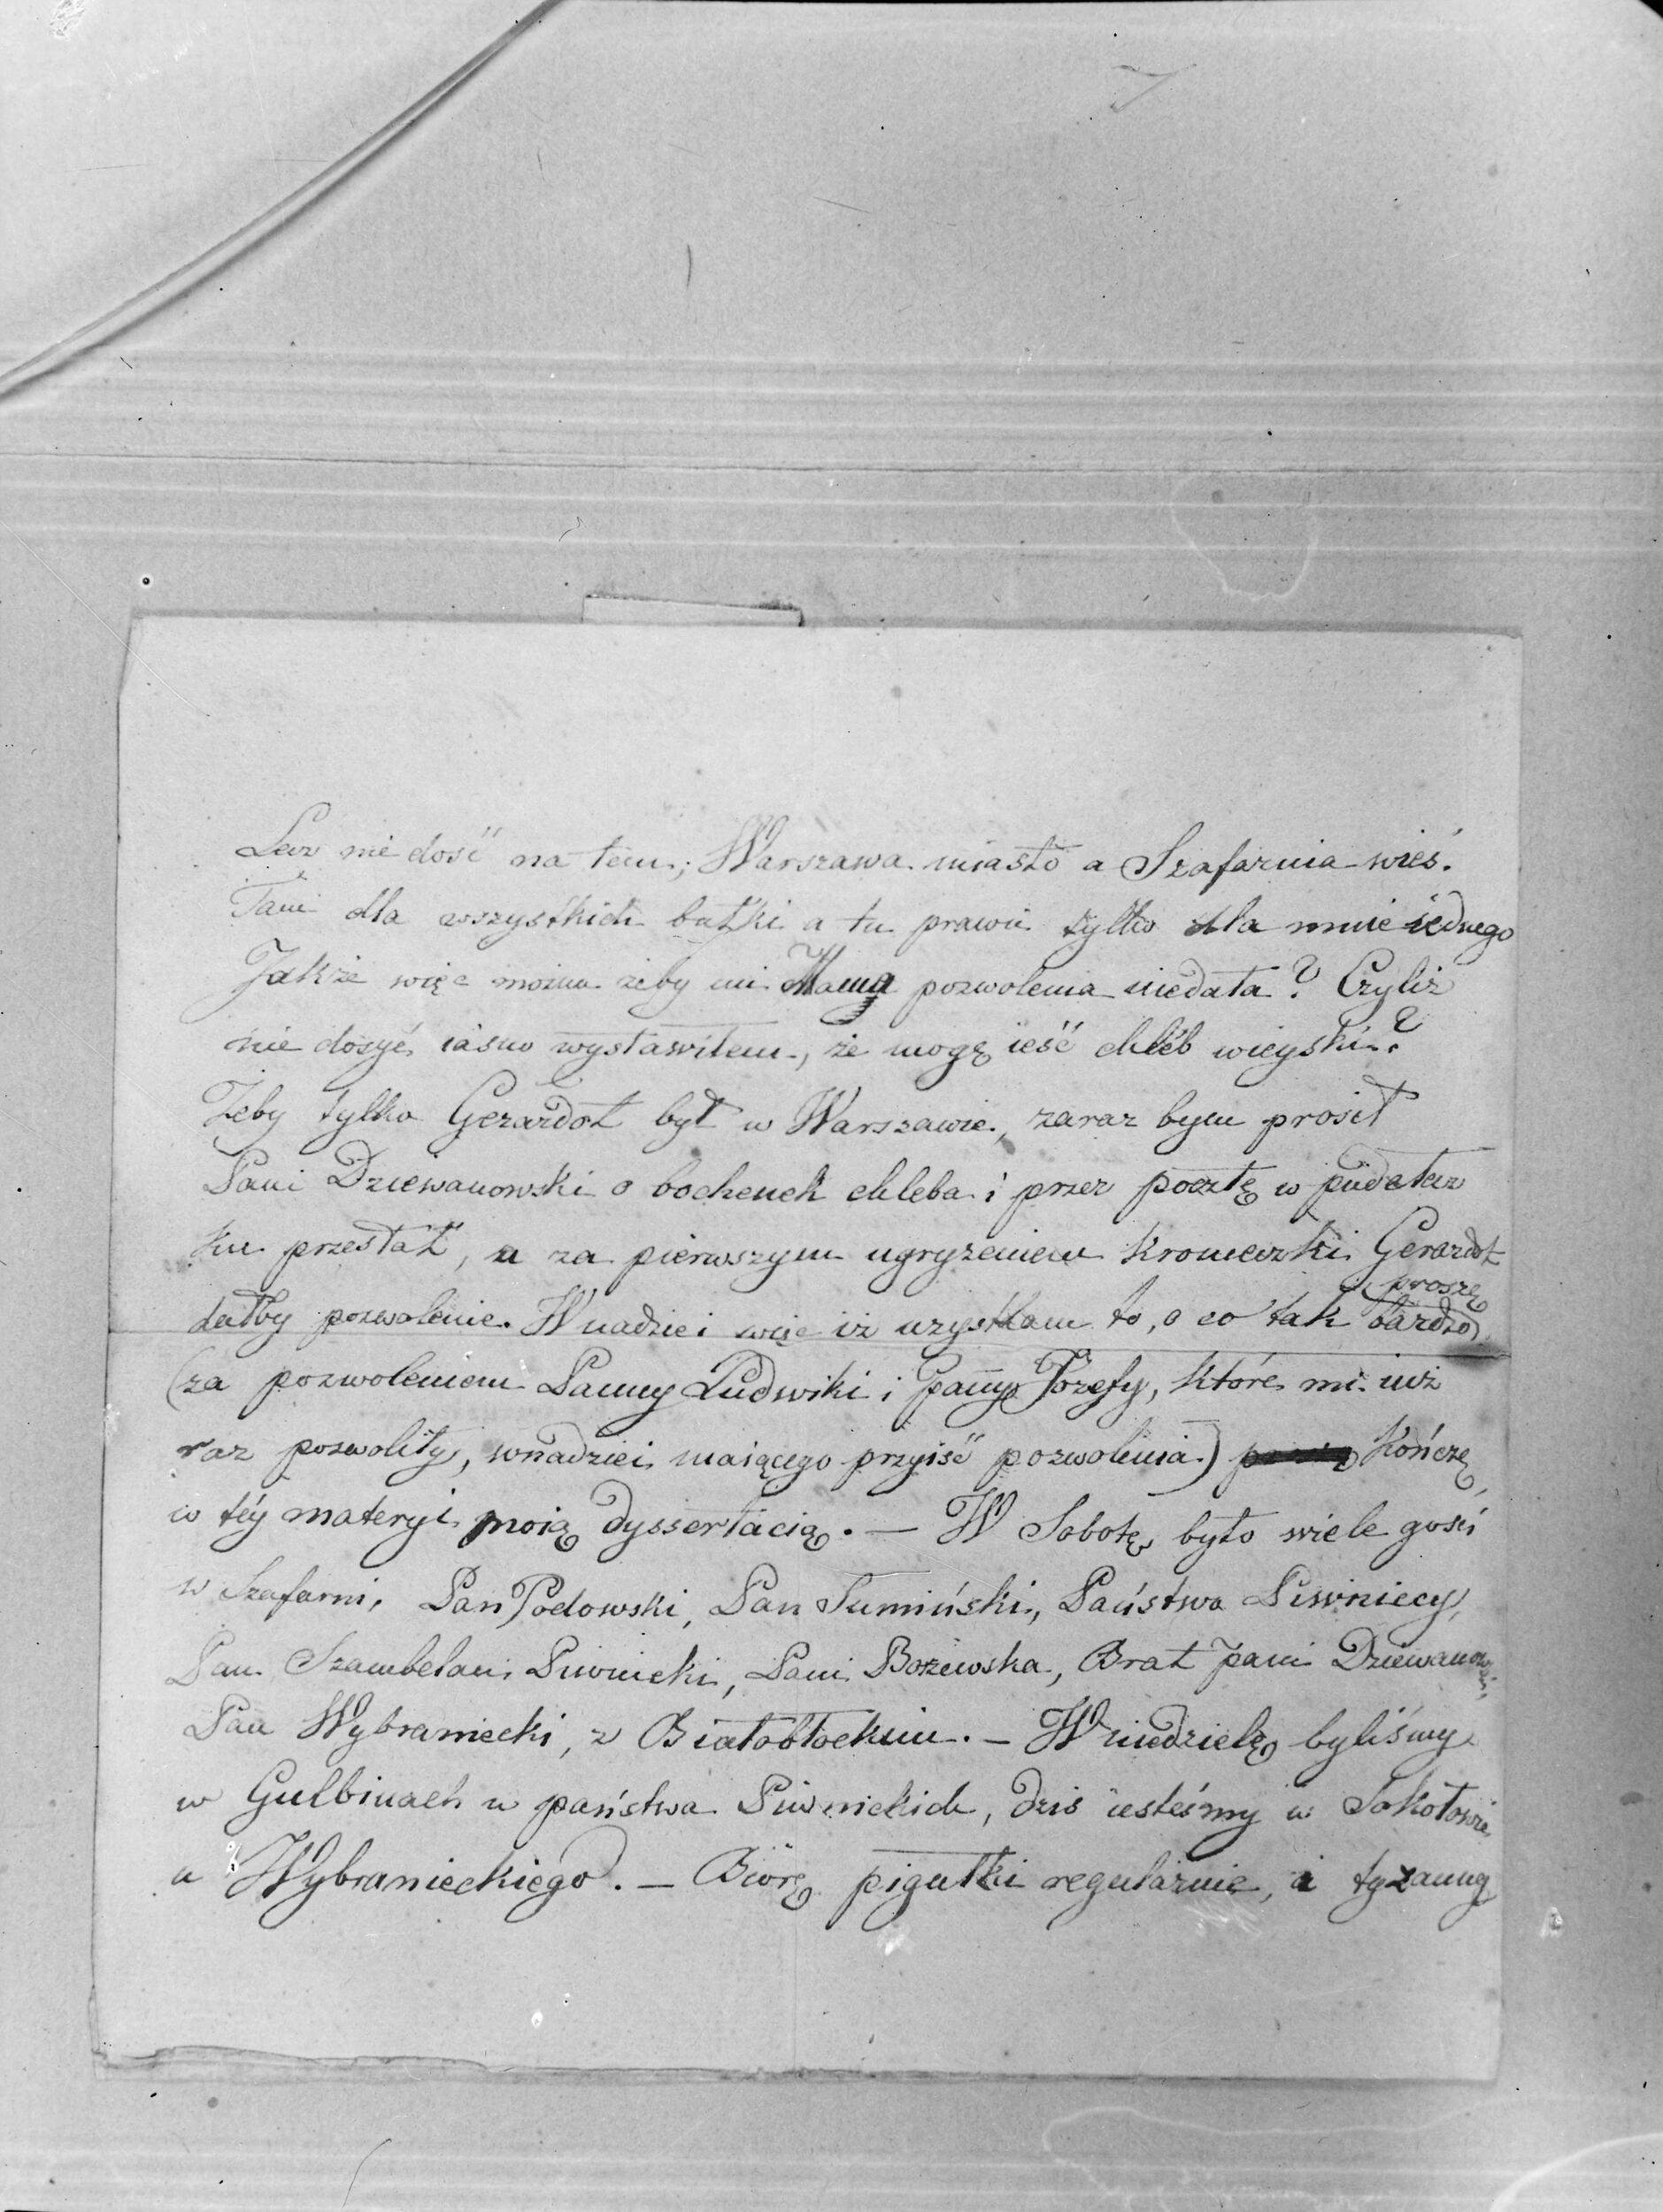 Lecz nie dość na tem; Warszawa miasto a Szafarnia wieś.
Tam dla wszystkich bułki a tu prawie tylko dla mnie iednego
Jakże więc można żeby mi Mama pozwolenia niedała? Czyliż
nie dosyć iasno wystawiłem, że mogę ieść chléb wieyski?
Żeby tylko Gerardot był w Warszawie, zaraz bym prosił
Pani Dziewanowski o bochenek chleba i przez pocztę w pudełecz
ku przesłał, a za pierwszym ugryzeniem kromeczki Gerardot
dałby pozwolenie. W nadziei więc iż uzyskam to, o co tak bardzo proszę
(za pozwoleniem Panny Ludwiki i Panny Józefy, które mi iuż
raz pozwoliły, w nadziei maiącego przyiść pozwolenia) Kończę
w téy materyi moię dyssertacią. — W Sobotę było wiele gości
w Szafarni, Pan Podowski, Pan Sumiński, Państwo Piwniccy,
Pan Szambelan Piwnicki, Pani Bożewska, Brat Pani Dziewanowski,
Pan Wybraniecki, z Białobłockim. — W niedzielę byliśmy
w Gulbinach u państwa Piwnickich, dziś iesteśmy w Sokołowie
u Wybranieckiego. — Biorę pigułki regularnie, i tyzanny